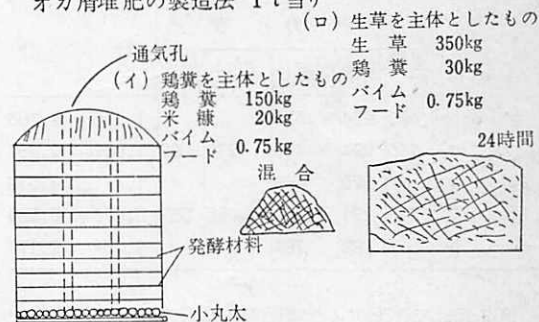 オガ屑堆肥の製造法 1t当り
(ロ) 生草を主体としたもの
生草 350kg
鶏糞 30kg
バイムフード 0.75kg
通気孔
(イ) 鶏糞を主体としたもの
鶏糞 150kg
米糠 20kg
バイムフード 0.75kg
混合
24時間
発酵材料
小丸太